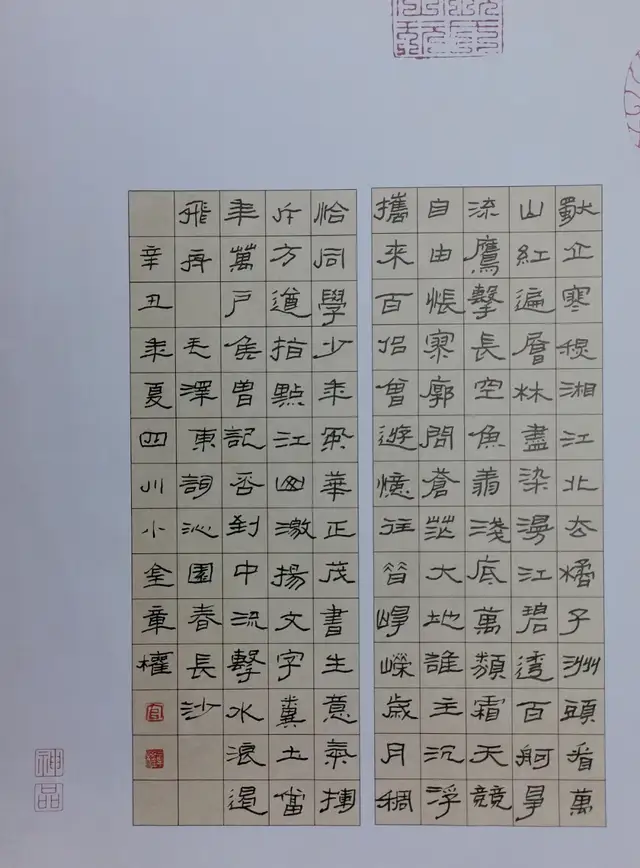 獨立寒秋湘江北去橘子洲頭看萬
山紅遍層林盡染漫江碧透百舸爭
流鷹擊長空魚翔淺底萬類霜天競
自由悵寥廓問蒼茫大地誰主沉浮
攜來百侶曾遊憶往昔崢嶸歲月稠
恰同學少年風華正茂書生意氣揮
斥方遒指點江山激揚文字糞土當
年萬戶侯曾記否到中流擊水浪遏
飛舟 毛澤東詞沁園春長沙
辛丑年夏四川小金章權
神品